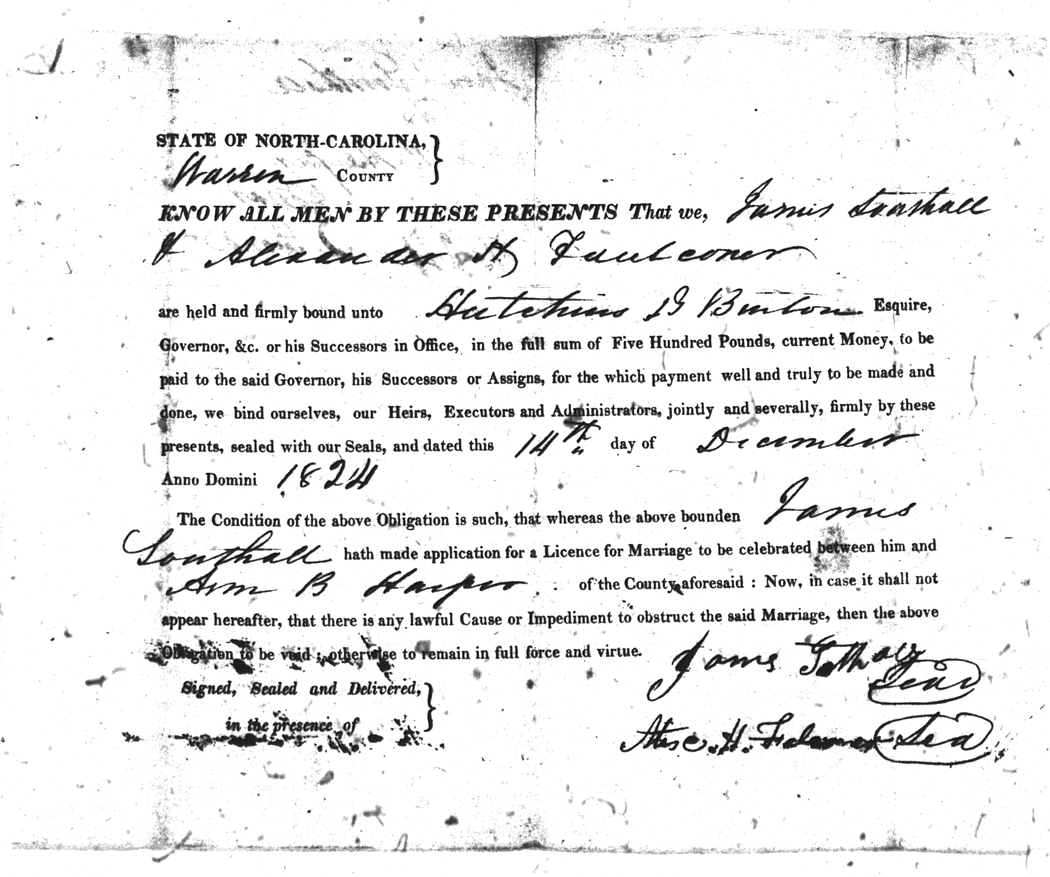 STATE OF NORTH-CAROLINA,
Warren COUNTY
KNOW ALL MEN BY THESE PRESENTS That we, James Southall
& Alexander H Faulconer
are held and firmly bound unto Hutchins G Burton Esquire,
Governor, &c. or his Successors in Office, in the full sum of Five Hundred Pounds, current Money, to be
paid to the said Governor, his Successors or Assigns, for the which payment well and truly to be made and
done, we bind ourselves, our Heirs, Executors and Administrators, jointly and severally, firmly by these
presents, sealed with our Seals, and dated this 14th day of December
Anno Domini 1824
The Condition of the above Obligation is such, that whereas the above bounden James
Southall hath made application for a Licence for Marriage to be celebrated between him and
Ann B Harper of the County aforesaid : Now, in case it shall not
appear hereafter, that there is any lawful Cause or Impediment to obstruct the said Marriage, then the above
Obligation to be void ; otherwise to remain in full force and virtue.
James
Seal
Signed, Sealed and Delivered,
in the presence of
H. Seal